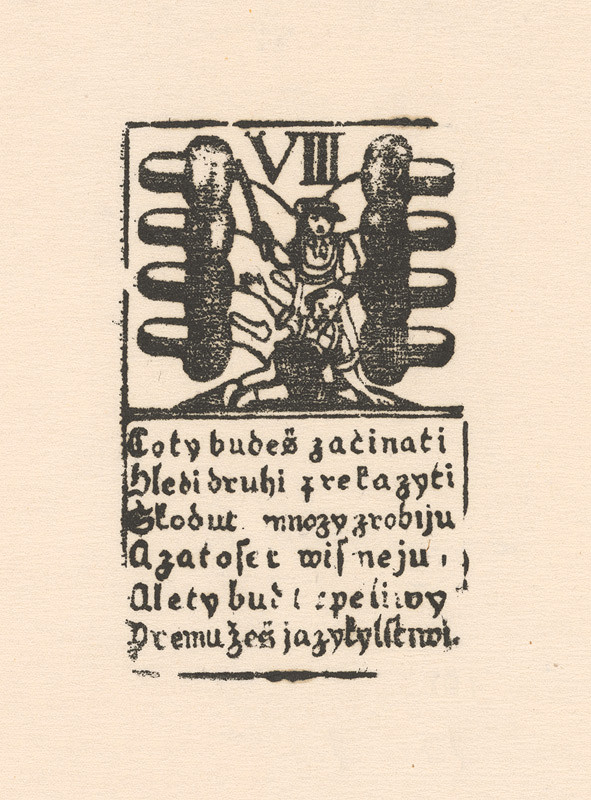 VIII
Coty budeš začinati
hledi druhi prekazyti
Škodu mnozy zrobiju
A zatoſer wiſ neju,
Alety bud
Premužeš jazyky lſtiwi.